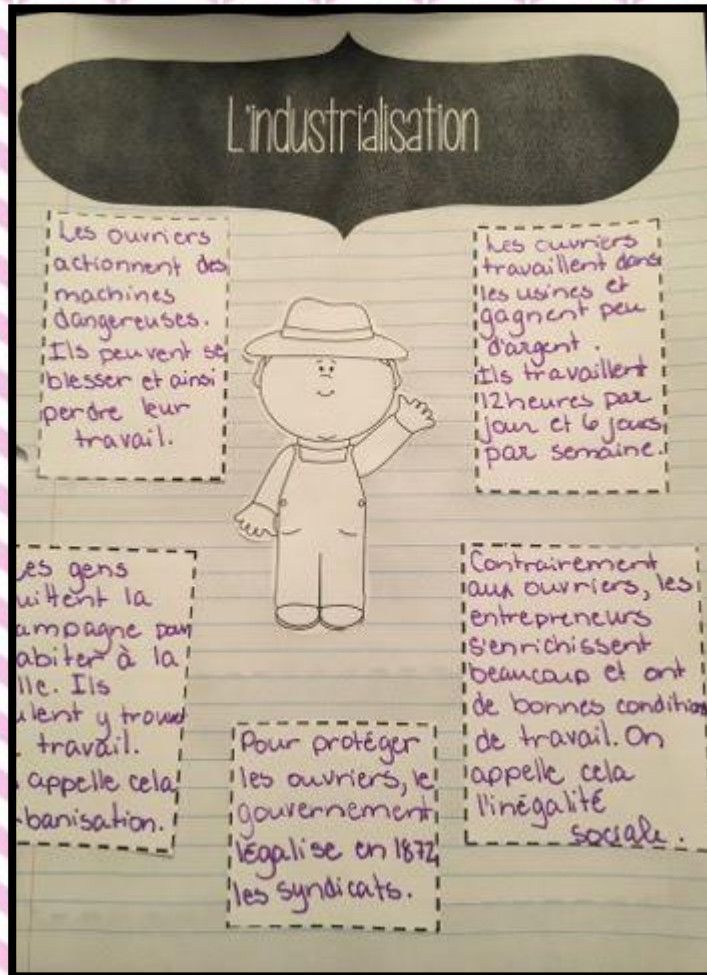 L'industrialisation
Les ouvriers
actionnent des
machines
dangereuses.
Ils peuvent se
blesser et ainsi
perdre leur
travail.
Les ouvriers
travaillent dans
les usines et
gagnent peu
d'argent.
Ils travaillent
12 heures par
jour et 6 jours
par semaine.
es gens
uittent la
ampagne pour
abiter à la
lle. Ils
ulent y trouver
travail.
appelle cela
banisation.
Pour protéger
les ouvriers, le
gouvernement
légalise en 1872
les syndicats.
Contrairement
aux ouvriers, les
entrepreneurs
s'enrichissent
beaucoup et ont
de bonnes conditions
de travail. On
appelle cela
l'inégalité
sociale.